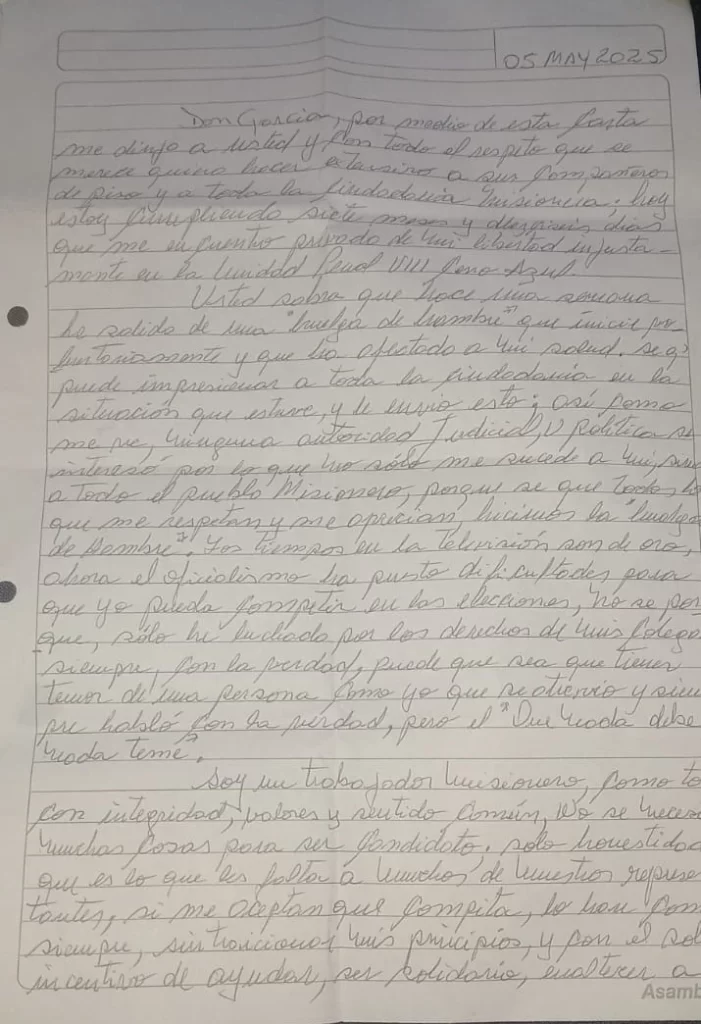 05 MAY 2025
Don Garcia, por medio de esta Carta
me dirijo a usted y Con todo el respeto que se
merece quiero hacer extensivo a sus Compañeros
de piso y a toda la Ciudadania Misionera; hoy
estoy Cumpliendo siete meses y dieciseis dias
que me encuentro privado de mi libertad injusta-
mente en la Unidad Penal VIII Cerro Azul.
Usted sabra que hace una semana
he salido de una "huelga de hambre" que inicie vo-
luntariamente y que ha afectado a mi salud. se q'
puede impresionar a toda la Ciudadania en la
situación que estuve, y le envio esto; así como
me ve, ninguna autoridad Judicial, o politica se
interesó por lo que no sólo me sucede a mi, sino
a todo el pueblo Misionero, porque se que todos lo
que me respetan y me aprecian, hicimos la "huelga
de hambre". Los tiempos en la televisión son de oro,
ahora el oficialismo ha puesto dificultades para
que yo pueda Competir en las elecciones, no se por
que, sólo he luchado por los derechos de mis Colega
siempre, Con la verdad, puede que sea que tienen
temor de una persona Como yo que se atrevio y siem
pre habló Con la verdad, pero el "Que nada debe
nada teme".
Soy un trabajador Misionero, Como to
Con integridad, valores y sentido Común, No se nece
muchas Cosas para ser Candidato, solo honestidad
que es lo que les falta a muchos de nuestros represe
tantes, si me aceptan que Compita, lo haré Com
siempre, sin traicionar mis principios, y con el sol
incentivo de ayudar, ser solidario, enaltecer a
Asamb